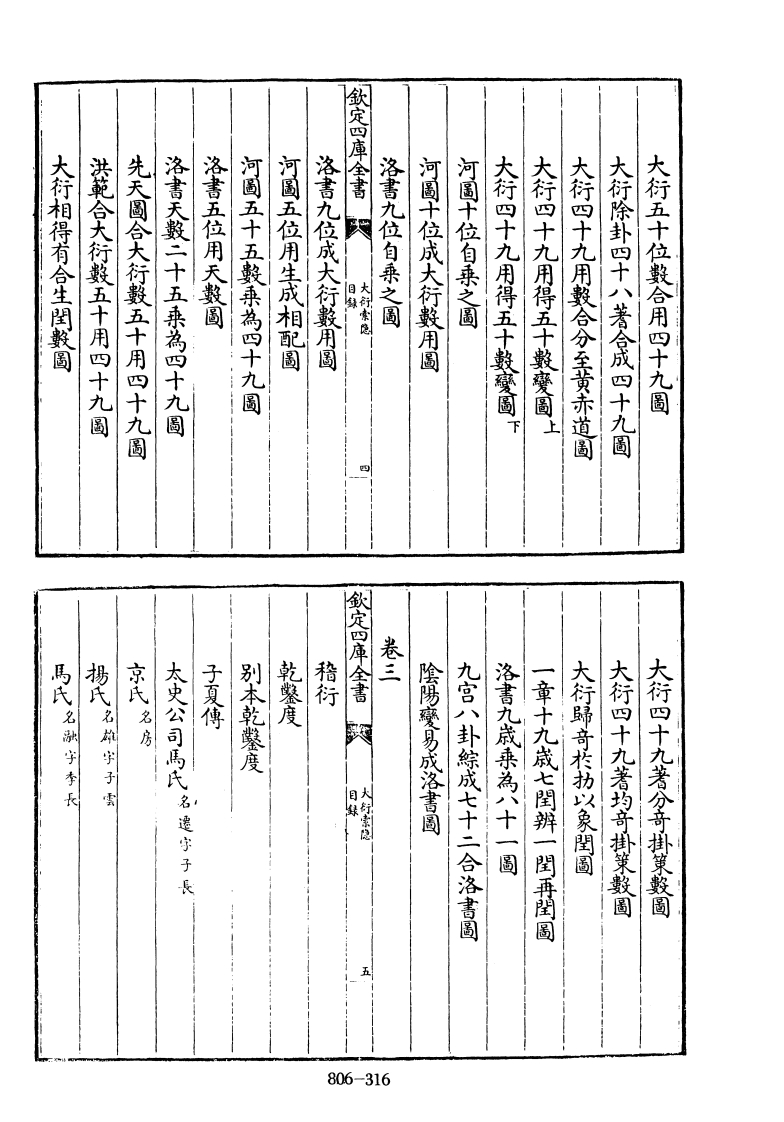 大衍五十位數合用四十九圖
大衍除卦四十八蓍合成四十九圖
大衍四十九用數合分至黃赤道圖
大衍四十九用得五十數變圖上
大衍四十九用得五十數變圖下
河圖十位自乘之圖
河圖十位成大衍數用圖
洛書九位自乘之圖
欽定四庫全書
大衍索隱
目録
四
洛書九位成大衍數用圖
河圖五位用生成相配圖
河圖五十五數乘為四十九圖
洛書五位用天數圖
洛書天數二十五乘為四十九圖
先天圖合大衍數五十用四十九圖
洪範合大衍數五十用四十九圖
大衍相得有合生閏數圖
大衍四十九蓍分奇掛策數圖
大衍四十九蓍均奇掛策數圖
大衍歸奇於扐以象閏圖
一章十九歳七閏辨一閏再閏圖
洛書九歳乘為八十一圖
九宮八卦綜成七十二合洛書圖
陰陽變易成洛書圖
卷三
欽定四庫全書
大衍索隱
目録
五
稽衍
乾鑿度
别本乾鑿度
子夏傳
太史公司馬氏名遷字子長
京氏名房
揚氏名雄字子雲
馬氏名融字季長
806-316